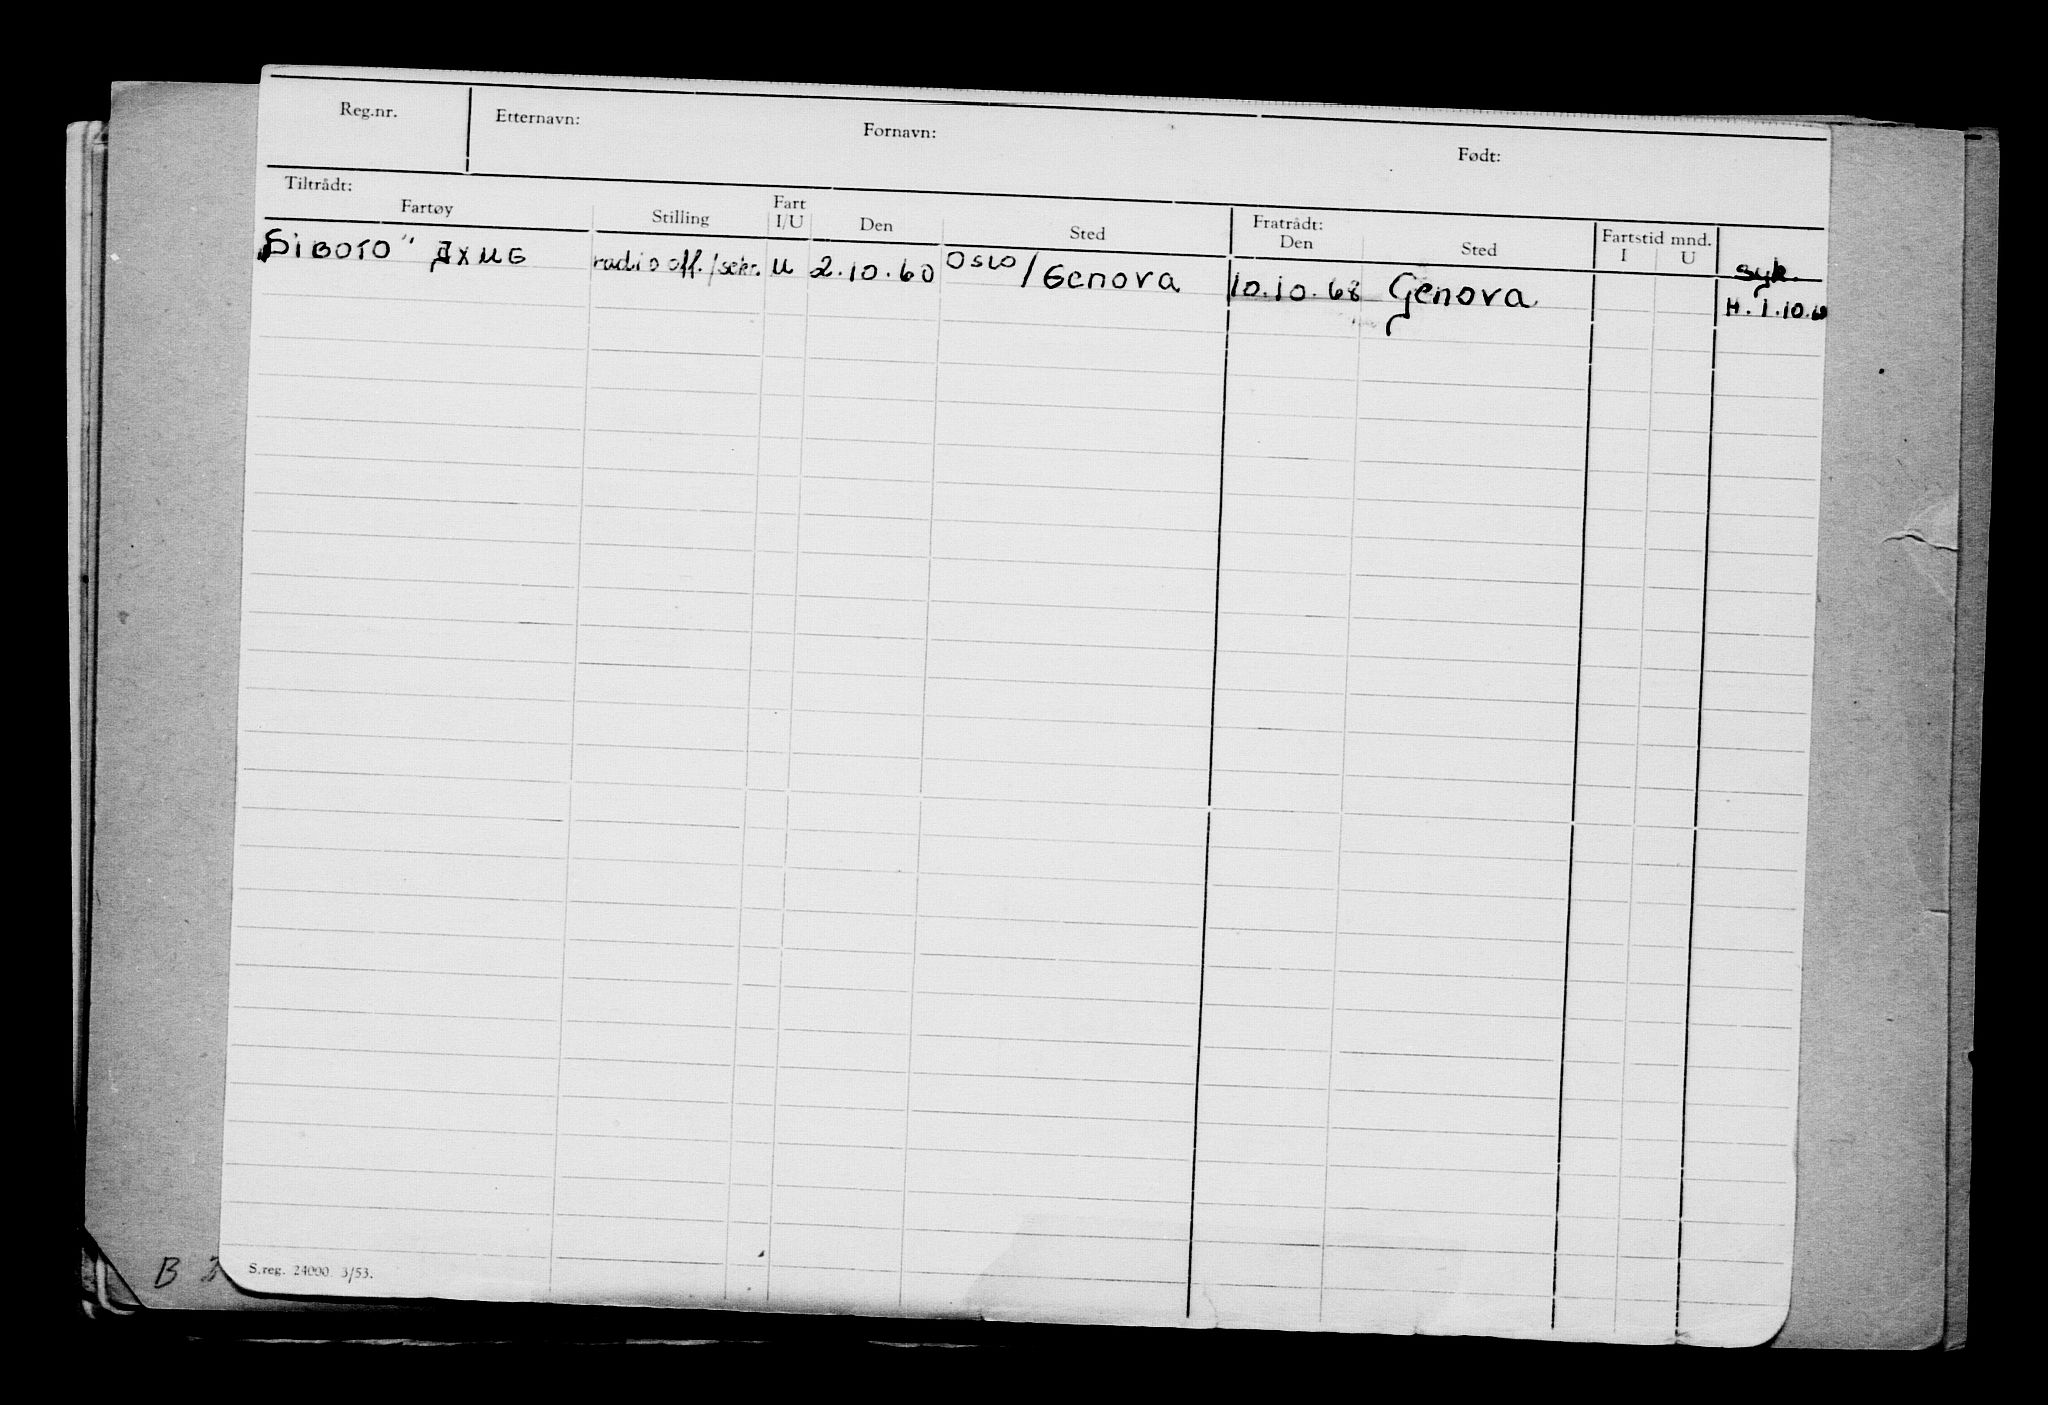 Reg.nr. Etternavn: Fornavn: Født:
Tiltrådt: Fratrådt:
Fartøy Stilling Fart I/U Den Sted Den Sted Fartstid mnd. I U
"SIBOTO" JXUG radio off./sekr. U 2.10.60 Oslo/Genova 10.10.68 Genova syk.
H. 1.10.
S.reg. 24000 3/53.
B